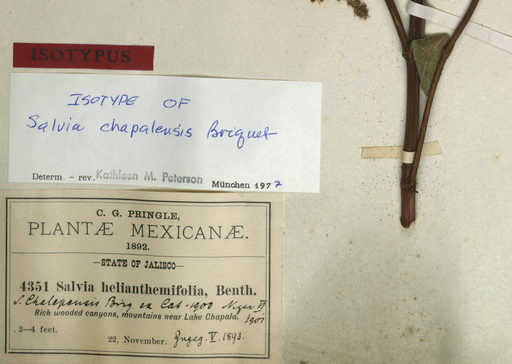 ISOTYPUS
ISOTYPE OF
Salvia chapalensis Briquet
Determ. - rev. Kathleen M. Peterson München 1977
C. G. PRINGLE,
PLANTÆ MEXICANÆ.
1892.
STATE OF JALISCO
4351 Salvia helianthemifolia, Benth.
S. Chalapensis Briq ex Cat. 1900
Rich wooded canyons, mountains near Lake Chapala.
1901
2—4 feet.
22, November. V. 1893.